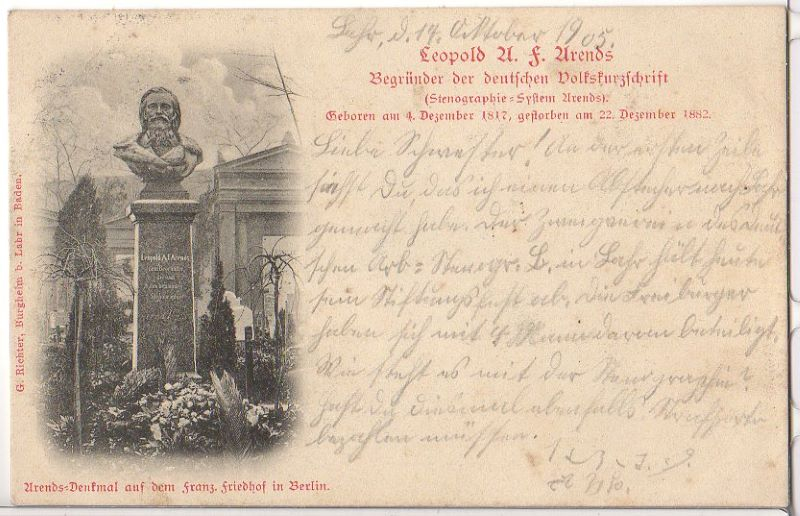 Lahr, d. 14. Oktober 1905.
Leopold A. F. Arends
Begründer der deutschen Volkskurzschrift
(Stenographie-System Arends).
Geboren am 4. Dezember 1817, gestorben am 22. Dezember 1882.
Liebe Schwester! An der ersten Zeile
siehst Du, das ich einen Abstecher nach Lahr
gemacht habe. Der Zweigverein des deut-
schen Arb-Stenogr. B. in Lahr hält heute
sein Stiftungsfest ab. Die Freiburger
haben sich mit 4 Mann daran beteiligt.
Wie steht es mit der Stenographie?
hast du diesmal ebenfalls Strafporto
bezahlen müssen.
Leopold A. F. Arends
G. Richter, Burgheim b. Lahr in Baden.
Arends-Denkmal auf dem Franz. Friedhof in Berlin.